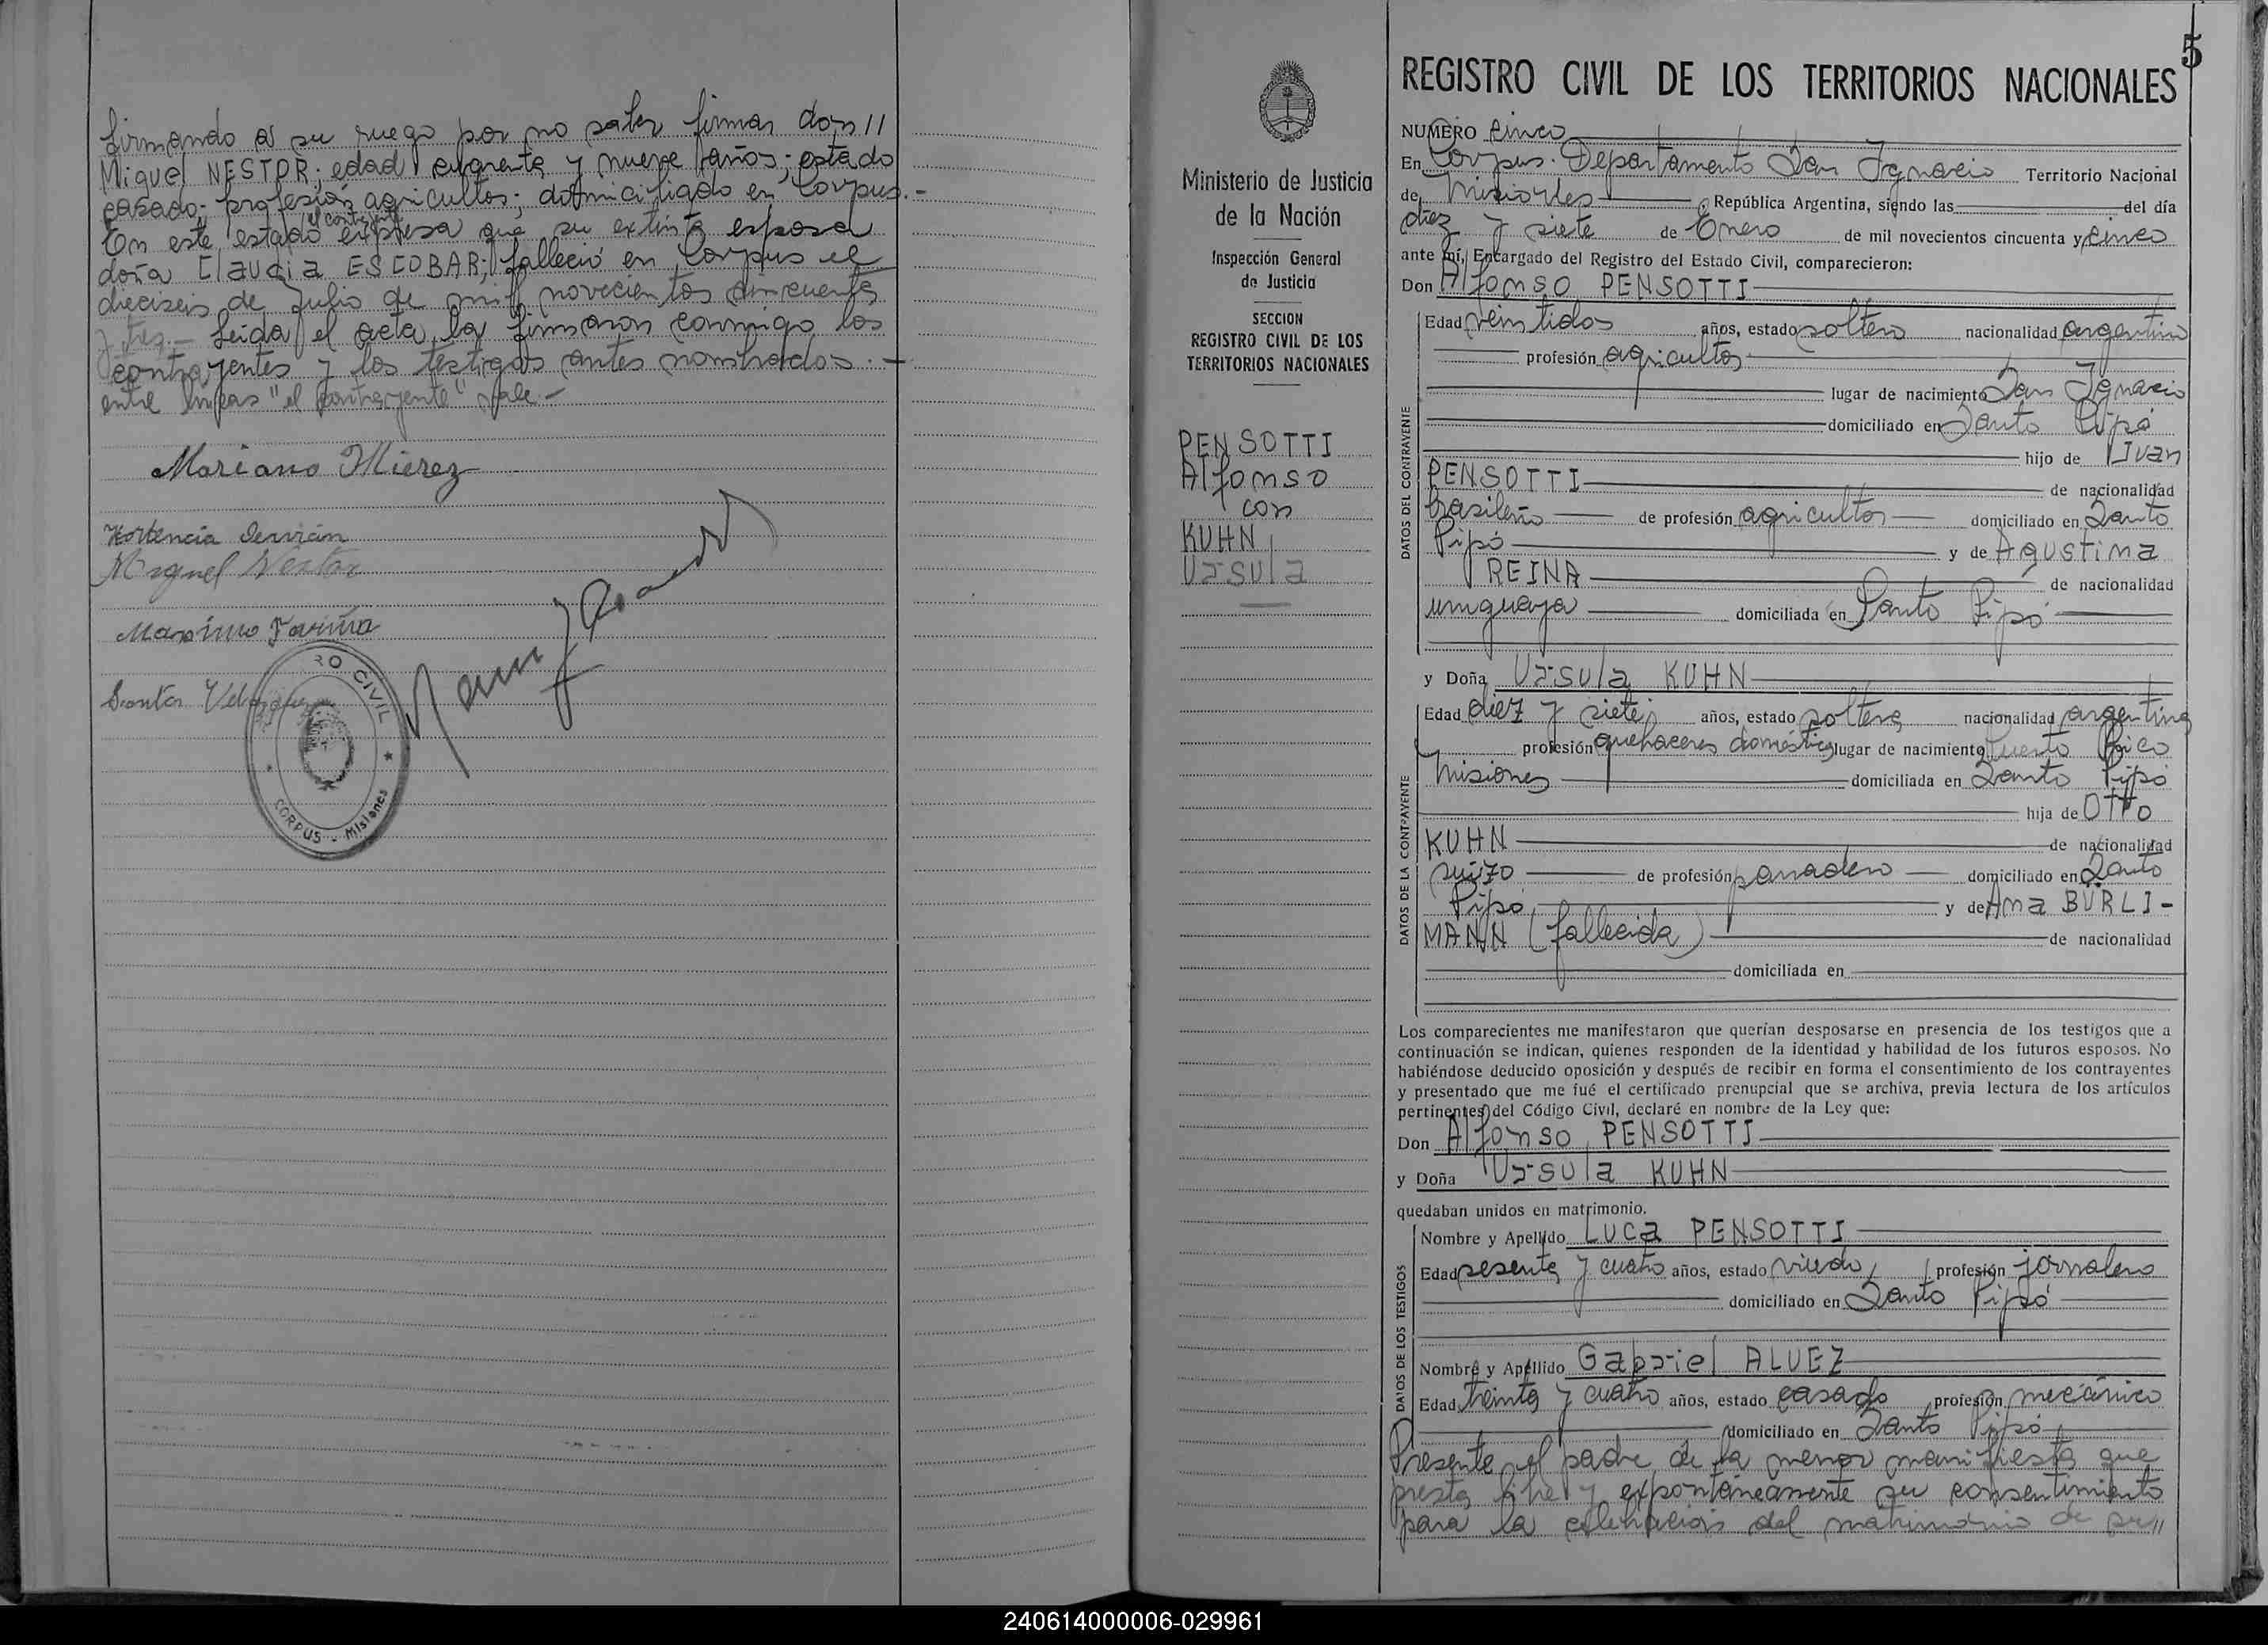 firmando a su ruego por no saber firmar don //
Miguel NESTOR; edad cuarenta y nueve años; estado
casado; profesión agricultor; domiciliado en Corpus.-
el contrayente
En este estado expresa que su extinta esposa
doña Claudia ESCOBAR; falleció en Corpus el
dieciseis de Julio de mil novecientos cincuenta
y tres.- Leida el acta, la firmaron conmigo los
contrayentes y los testigos antes nombrados.-
entre lineas "el contrayente" vale.-
Mariano Mierez
Hortencia Servián
Miguel Nestor
Maximo Fariña
Santa
RO CIVIL
CORPUS - Misiones
Ministerio de Justicia
de la Nación
Inspección General
de Justicia
SECCION
REGISTRO CIVIL DE LOS
TERRITORIOS NACIONALES
PENSOTTI
Alfonso
con
KUHN
Ursula
5
REGISTRO CIVIL DE LOS TERRITORIOS NACIONALES
NUMERO cinco
En Corpus. Departamento San Ignacio Territorio Nacional
de Misiones República Argentina, siendo las del día
diez y siete de Enero de mil novecientos cincuenta y cinco
ante mí, Encargado del Registro del Estado Civil, comparecieron:
Don Alfonso PENSOTTI
DATOS DEL CONTRAYENTE
Edad veintidos años, estado soltero nacionalidad argentino
profesión agricultor
lugar de nacimiento San Ignacio
domiciliado en Santo Pipó
hijo de Juan
PENSOTTI de nacionalidad
brasileño de profesión agricultor domiciliado en Santo
Pipó y de Agustina
REINA de nacionalidad
uruguaya domiciliada en Santo Pipó
y Doña Ursula KUHN
DATOS DE LA CONTRAYENTE
Edad diez y siete años, estado soltera nacionalidad argentina
profesión quehaceres domésticos lugar de nacimiento Puerto Rico
Misiones domiciliada en Santo Pipó
hija de Otto
KUHN de nacionalidad
suizo de profesión panadero domiciliado en Santo
Pipó y de Ana BÜRLI-
MANN (fallecida) de nacionalidad
domiciliada en
Los comparecientes me manifestaron que querían desposarse en presencia de los testigos que a
continuación se indican, quienes responden de la identidad y habilidad de los futuros esposos. No
habiéndose deducido oposición y después de recibir en forma el consentimiento de los contrayentes
y presentado que me fué el certificado prenupcial que se archiva, previa lectura de los artículos
pertinentes del Código Civil, declaré en nombre de la Ley que:
Don Alfonso PENSOTTI
y Doña Ursula KUHN
quedaban unidos en matrimonio.
DATOS DE LOS TESTIGOS
Nombre y Apellido Luca PENSOTTI
Edad sesenta y cuatro años, estado viudo profesión jornalero
domiciliado en Santo Pipó
Nombre y Apellido Gabriel ALVEZ
Edad treinta y cuatro años, estado casado profesión mecánico
domiciliado en Santo Pipó
Presente el padre de la menor manifiesta que
presta libre y expontáneamente su consentimiento
para la celebración del matrimonio de su//
240614000006-029961